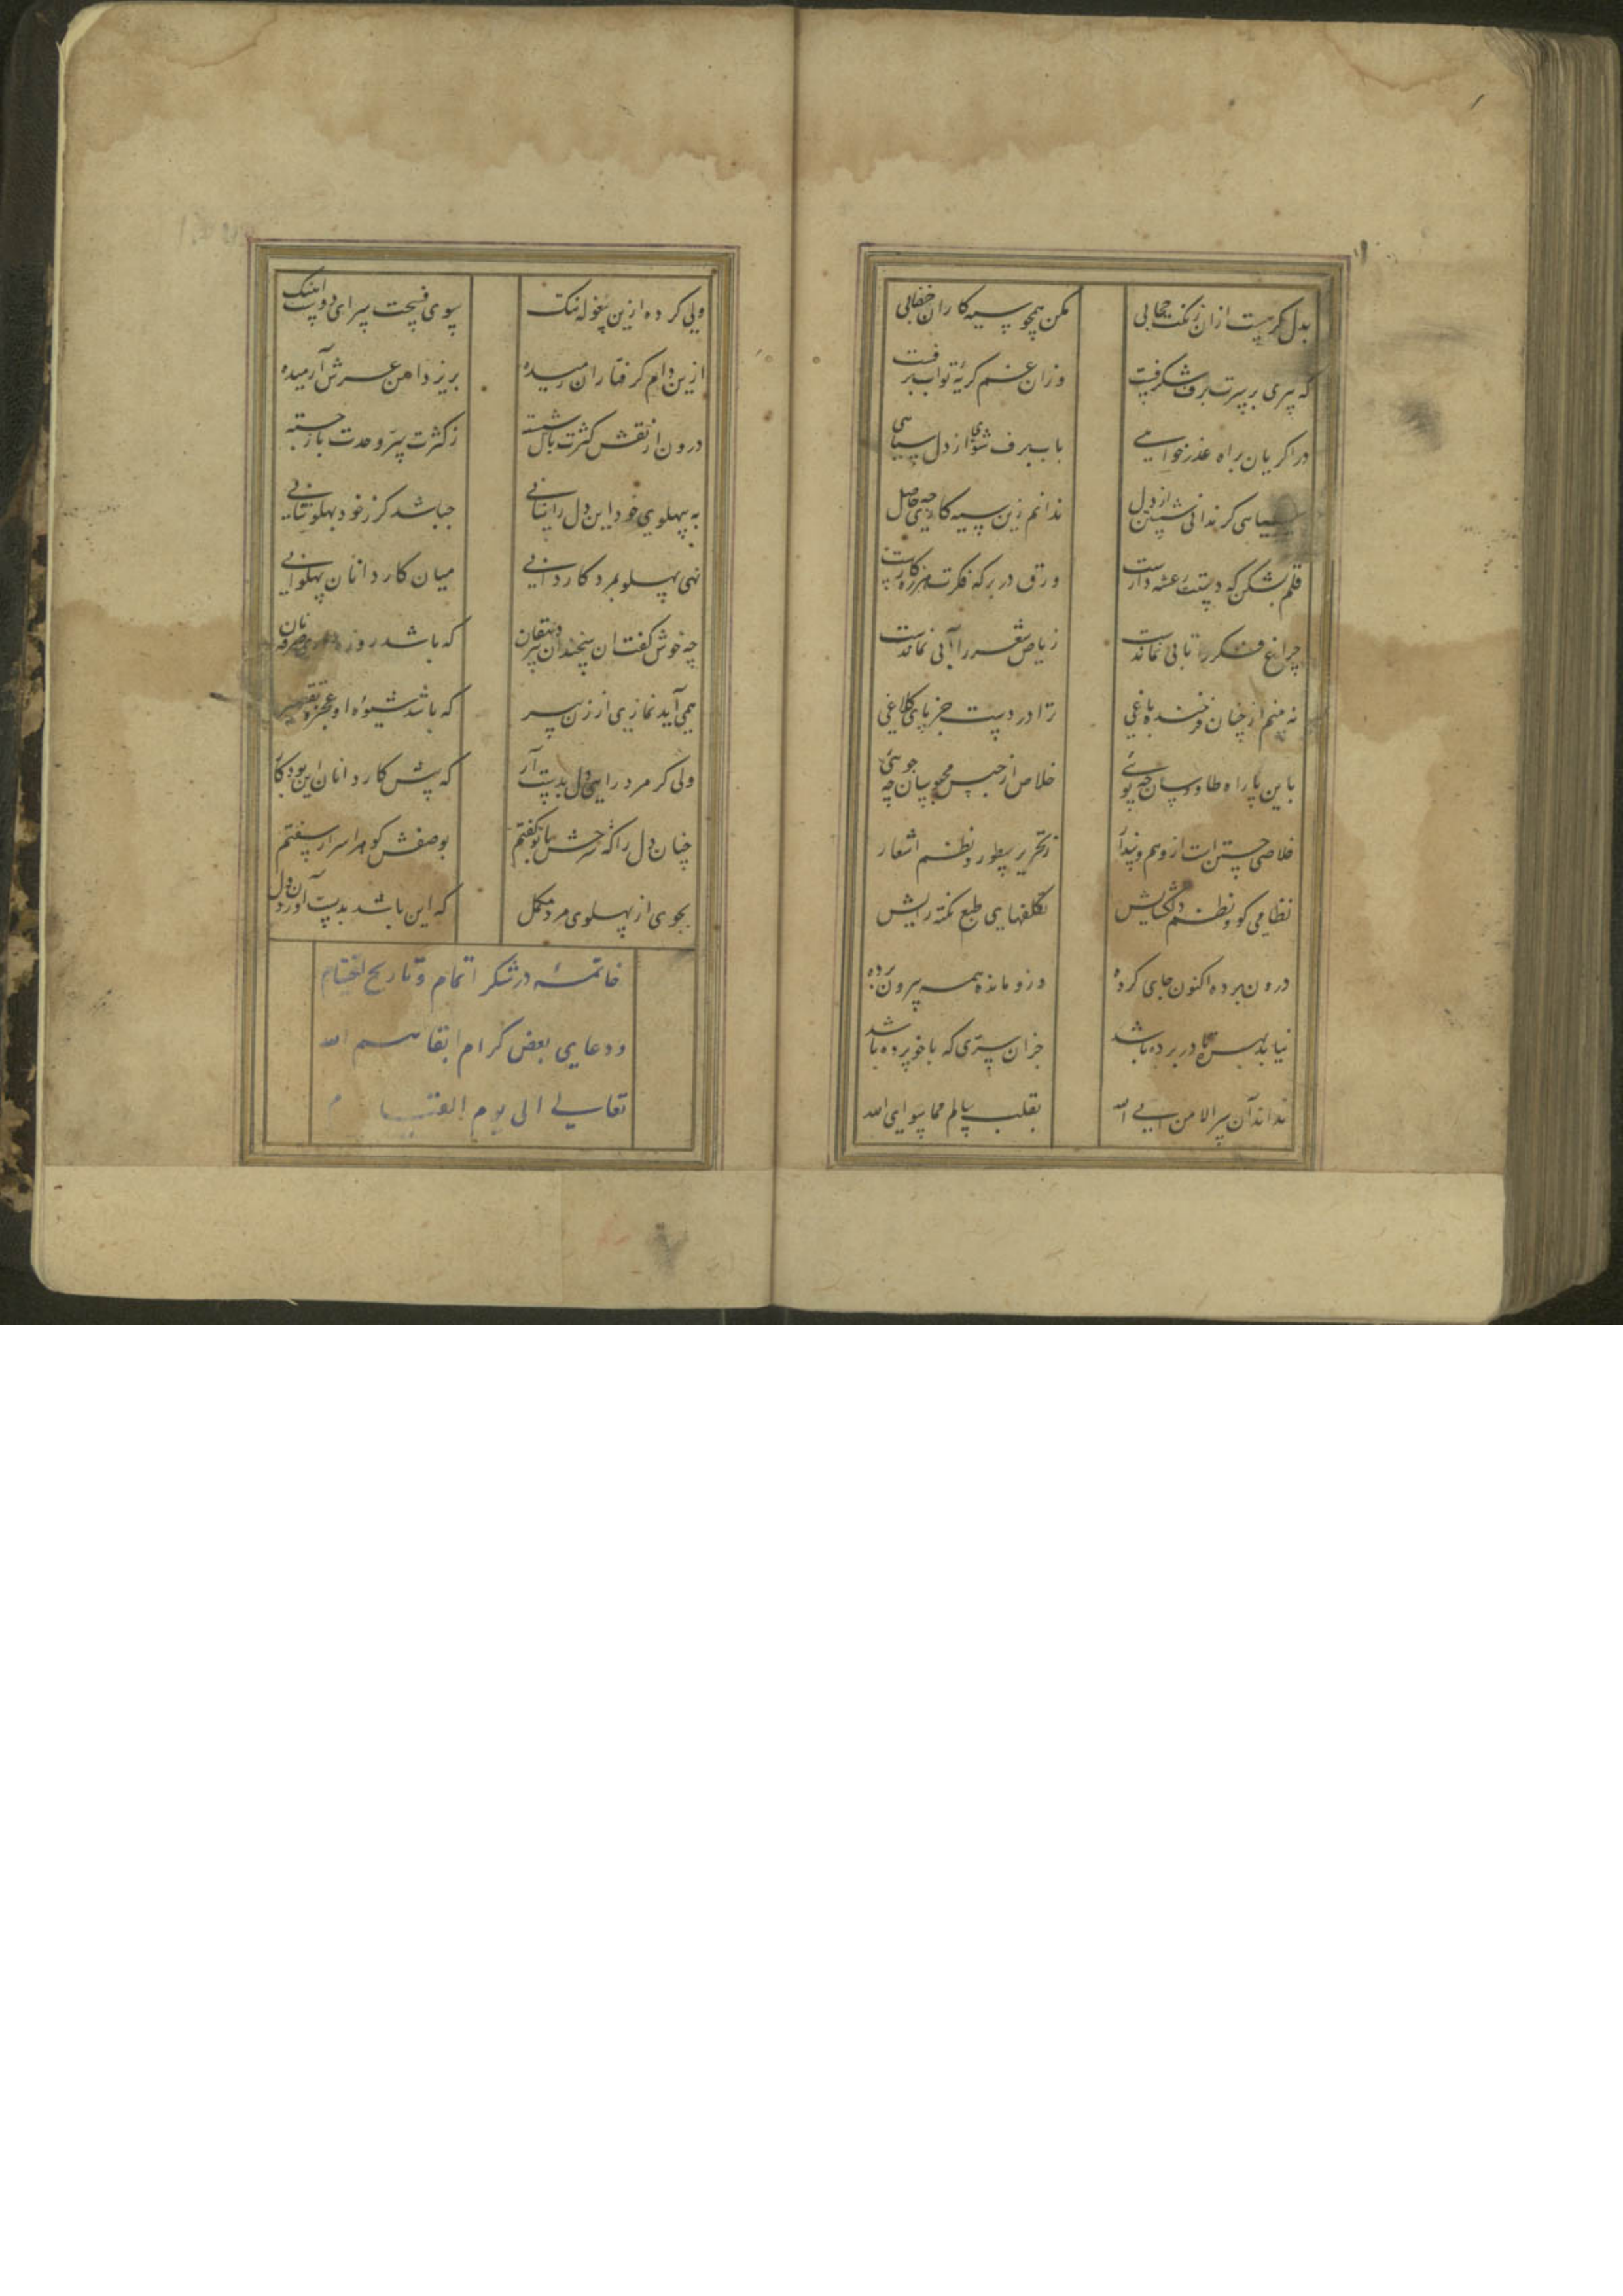 بدل کر هست ازان زنکت حجابی مکن همچو سیه کاران خضابی
که پیری بر سرت برف شکرفست وزان غم کریهٔ تو آب برفست
درا کریان براه عذر خواهی بآب برف شوی از دل سیاهی
سیاهی کر ندانی شستن از دل ندانم زین سیه کاری چه حاصل
قلم بشکن که دستت رعشه دارست ورق در بر که فکرت هرزه کارست
چراغ فکر را تابی نماندست ریاض شعر را آبی نماندست
نه بینم از چنان فرخنده باغی ترا در دست جز پای کلاغی
باین پا راه طاوسان چه پوئی خلاص از حبس محبوسان چه جوئی
خلاصی جستن است از وهم و پندار ز تحریر سطور و نظم اشعار
نظامی کو و نظم دلکشایش تکلفهای طبع نکته رایش
درون پرده اکنون جای کرده وزو مانده همه بیرون پرده
نیابد بهره تا در پرده باشد جز آن سری که با خود برده باشد
نداند آن سر الا من اتی الله بقلب سالم مما سوای الله
ولی کرده ازین بیغوله تنک بسوی فسحت سرای دوست آهنک
ازین دام کرفتاران رمیده بزیر دامن عرش آرمیده
درون از نقش کثرت باک شسته ز کثرت سر وحدت باز جسته
به پهلوی خود این دل را نیابی چه باشد کر ز خود پهلو بتابی
نهی پهلو بمرد کاردانی میان کاردانان پهلوانی
چه خوش کفت آن سخندان دهقان پیر که باشد روز
همی آید نمازی از زن پیر که باشد شیوهٔ او عجز و تقصیر
ولی کر مرد راهی دل بدست آر که پیش کاردانان این بود کار
چنان دل را که شرحش با تو کفتم بوصفش کوهر اسرار سفتم
بجوی از پهلوی مرد مکمل که این باشد بدست آوردن دل
خاتمه در شکر اتمام و تاریخ اختتام
و دعای بعض کرام ابقاهم الله
تعالی الی یوم القیام